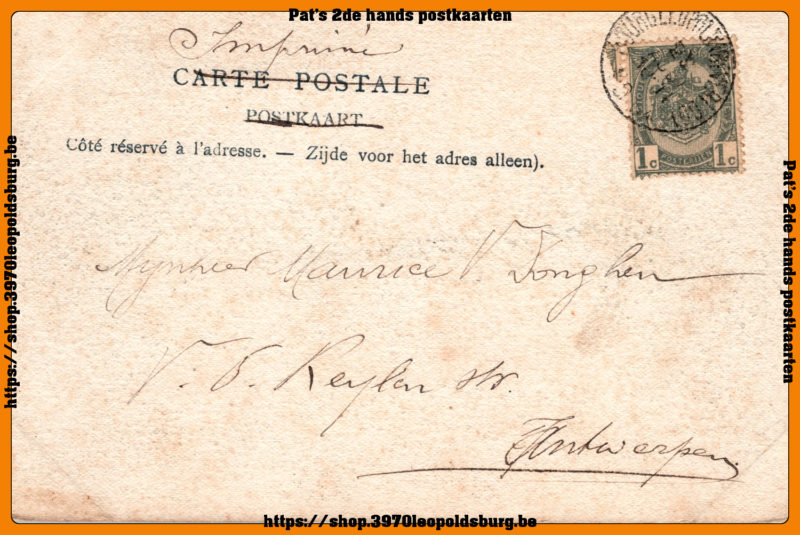 Pat's 2de hands postkaarten
Imprimé
CARTE POSTALE
POSTKAART
Côté réservé à l'adresse. — Zijde voor het adres alleen).
1c POSTERIJEN 1c
Mynheer Maurice V. Donghen
V. D. Keylen str.
Antwerpen
https://shop.3970leopoldsburg.be
Pat's 2de hands postkaarten
https://shop.3970leopoldsburg.be